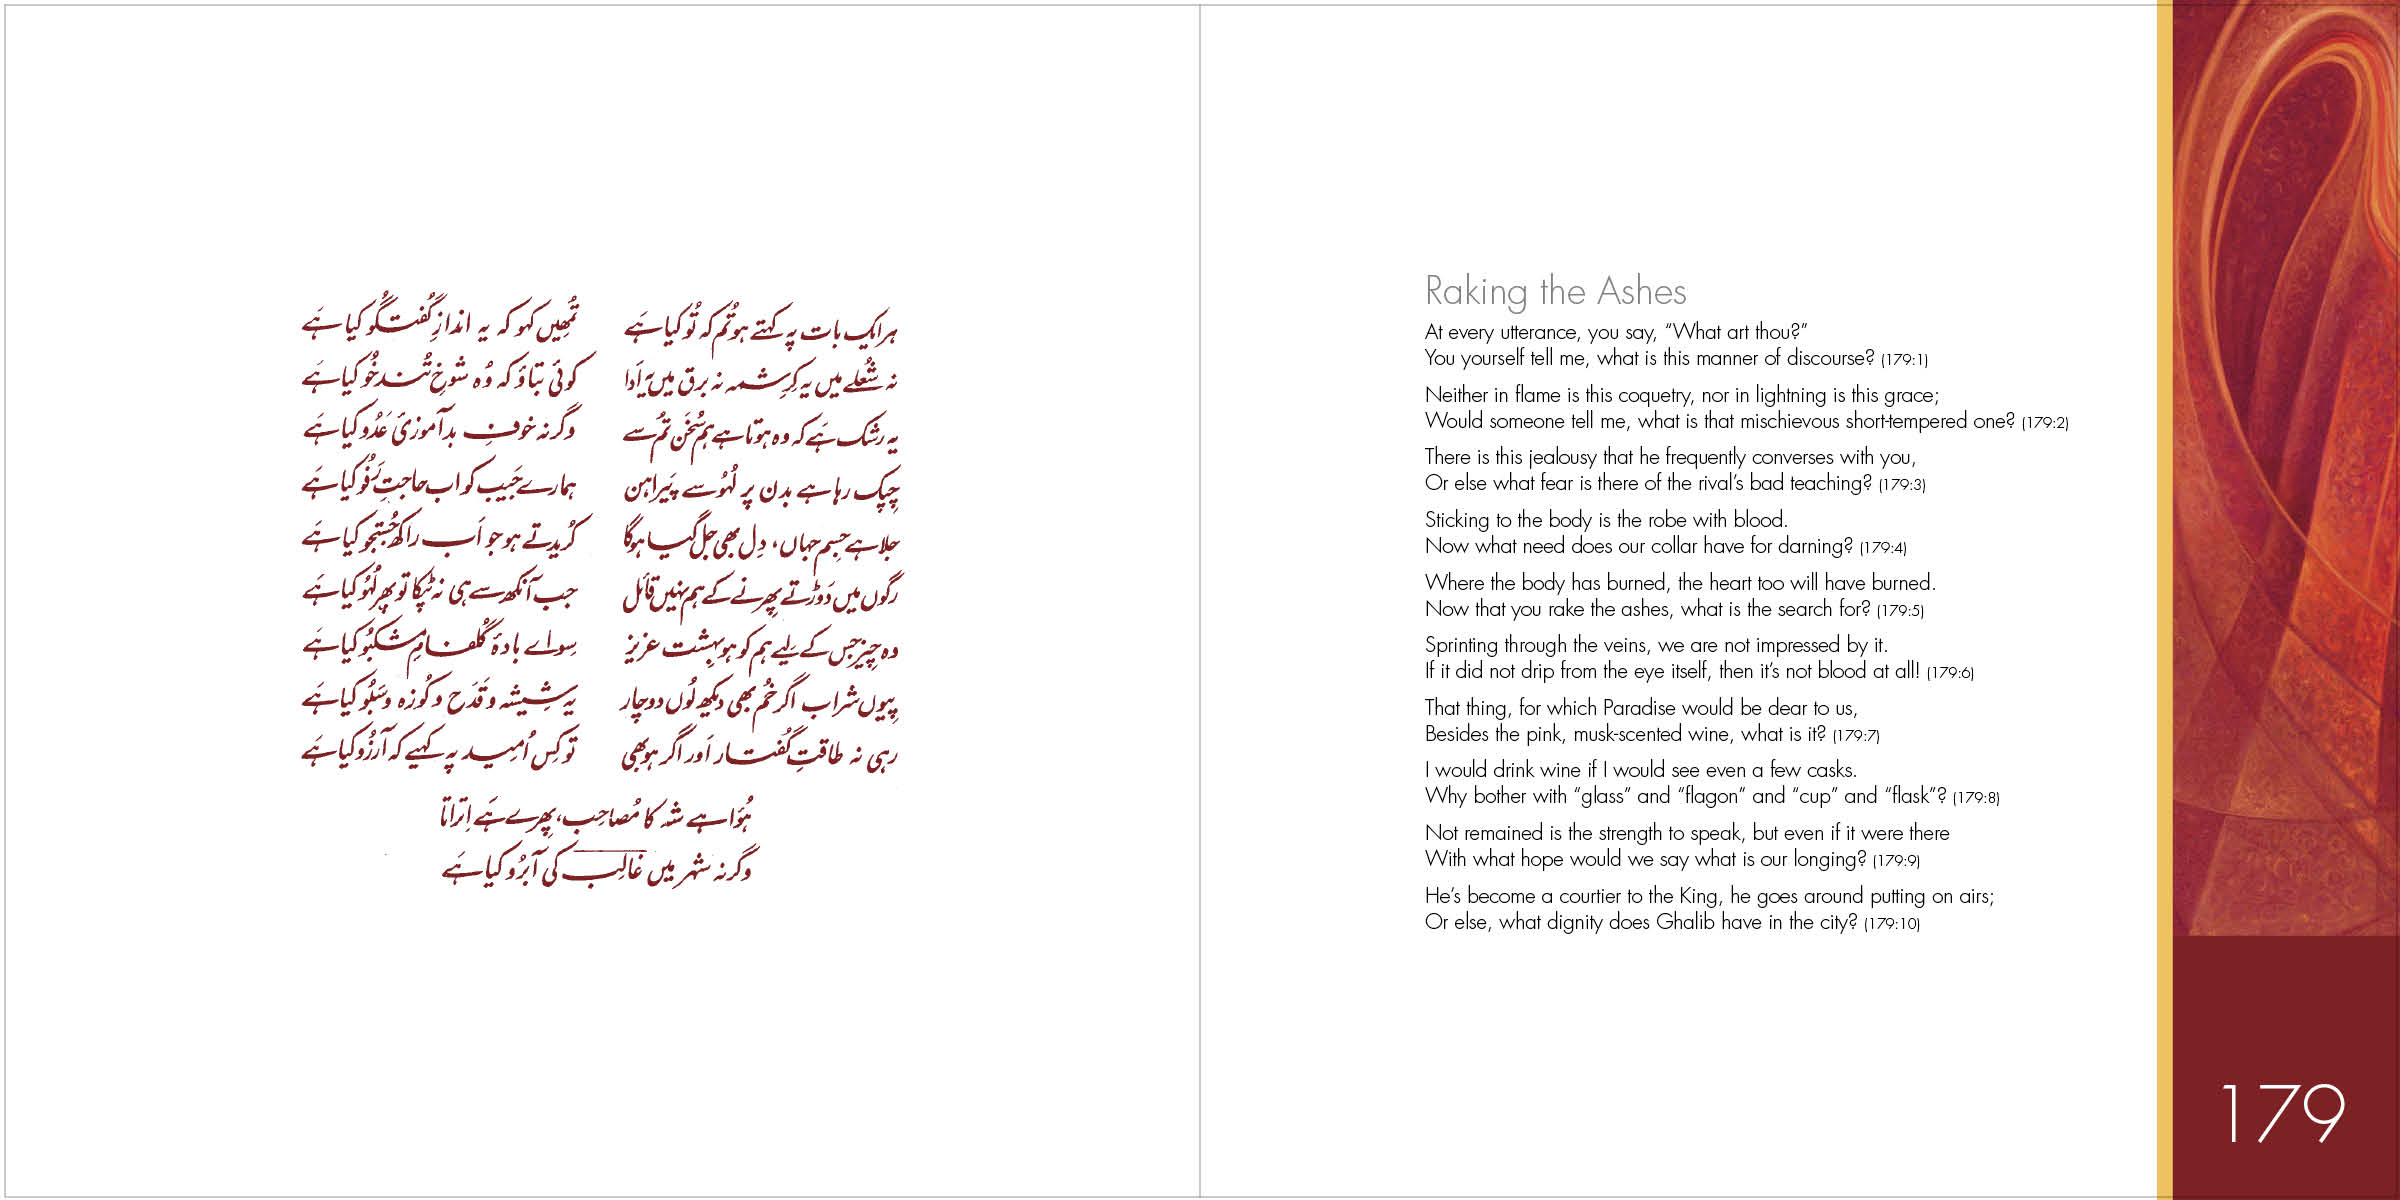 ہر ایک بات پہ کہتے ہو تُم کہ تُو کیا ہَے
تُمھِیں کہو کہ یہ اندازِ گُفتگُو کیا ہَے
نہ شُعلے میں یہ کِرِشمہ نہ برق میں یَہ اَدا
کوئی بتاؤ کہ وُہ شوخِ تُند خُو کیا ہَے
یہ رشک ہَے کہ وہ ہوتا ہے ہم سُخَن تُم سے
وگرنہ خوفِ بدآموزیِٔ عَدُو کیا ہَے
چِپک رہا ہے بدن پر لُہُو سے پَیراہن
ہمارے جَیب کو اب حاجتِ رَفُو کیا ہَے
جلا ہے جِسم جہاں، دِل بھی جل گیا ہوگا
کُریدتے ہو جو اَب راکھ جُستجو کیا ہَے
رگوں میں دَوڑتے پِھرنے کے ہم نہیں قائل
جب آنکھ سے ہی نہ ٹپکا تو پھر لُہُو کیا ہَے
وہ چیز جس کے لیے ہم کو ہو بِہِشت عزیز
سِواے بادۂ گُلفامِ مشکبُو کیا ہَے
پِیوں شراب اگر خُم بھی دیکھ لُوں دو چار
یہ شِیشہ و قَدَح و کُوزہ و سَبُو کیا ہَے
رہی نہ طاقتِ گُفتار اَور اگر ہو بھی
تو کِس اُمِید پہ کہیے کہ آرزُو کیا ہَے
ہُؤا ہے شہ کا مُصاحِب، پِھرے ہَے اِتراتا
وگرنہ شہر میں غالِب کی آبرُو کیا ہَے
Raking the Ashes
At every utterance, you say, “What art thou?”
You yourself tell me, what is this manner of discourse? (179:1)
Neither in flame is this coquetry, nor in lightning is this grace;
Would someone tell me, what is that mischievous short-tempered one? (179:2)
There is this jealousy that he frequently converses with you,
Or else what fear is there of the rival’s bad teaching? (179:3)
Sticking to the body is the robe with blood.
Now what need does our collar have for darning? (179:4)
Where the body has burned, the heart too will have burned.
Now that you rake the ashes, what is the search for? (179:5)
Sprinting through the veins, we are not impressed by it.
If it did not drip from the eye itself, then it’s not blood at all! (179:6)
That thing, for which Paradise would be dear to us,
Besides the pink, musk-scented wine, what is it? (179:7)
I would drink wine if I would see even a few casks.
Why bother with “glass” and “flagon” and “cup” and “flask”? (179:8)
Not remained is the strength to speak, but even if it were there
With what hope would we say what is our longing? (179:9)
He’s become a courtier to the King, he goes around putting on airs;
Or else, what dignity does Ghalib have in the city? (179:10)
179